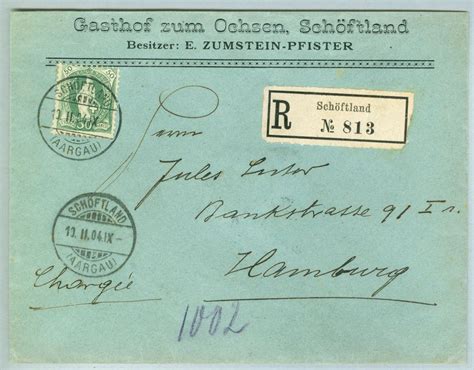 Gasthof zum Ochsen, Schöftland
Besitzer: E. ZUMSTEIN-PFISTER
SCHÖFTLAND
10.II.04.IX-
(AARGAU)
R
Schöftland
№ 813
Herrn
Jules
Bankstrasse 91 I r.
Hamburg
SCHÖFTLAND
10.II.04.IX-
(AARGAU)
Chargée
1002